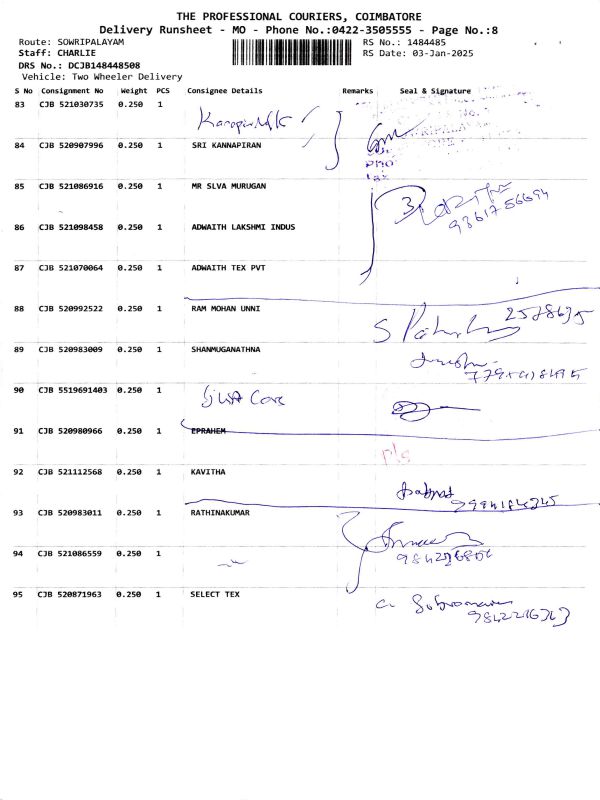 THE PROFESSIONAL COURIERS, COIMBATORE
Delivery Runsheet - MO - Phone No.:0422-3505555 - Page No.:8
Route: SOWRIPALAYAM RS No.: 1484485
Staff: CHARLIE RS Date: 03-Jan-2025
DRS No.: DCJB148448508
Vehicle: Two Wheeler Delivery
S No Consignment No Weight PCS Consignee Details Remarks Seal & Signature
83 CJB 521030735 0.250 1
84 CJB 520907996 0.250 1 SRI KANNAPIRAN
85 CJB 521086916 0.250 1 MR SLVA MURUGAN
86 CJB 521098458 0.250 1 ADWAITH LAKSHMI INDUS
87 CJB 521070064 0.250 1 ADWAITH TEX PVT
88 CJB 520992522 0.250 1 RAM MOHAN UNNI
89 CJB 520983009 0.250 1 SHANMUGANATHNA
90 CJB 5519691403 0.250 1
91 CJB 520980966 0.250 1 EPRAHEM
92 CJB 521112568 0.250 1 KAVITHA
93 CJB 520983011 0.250 1 RATHINAKUMAR
94 CJB 521086559 0.250 1
95 CJB 520871963 0.250 1 SELECT TEX